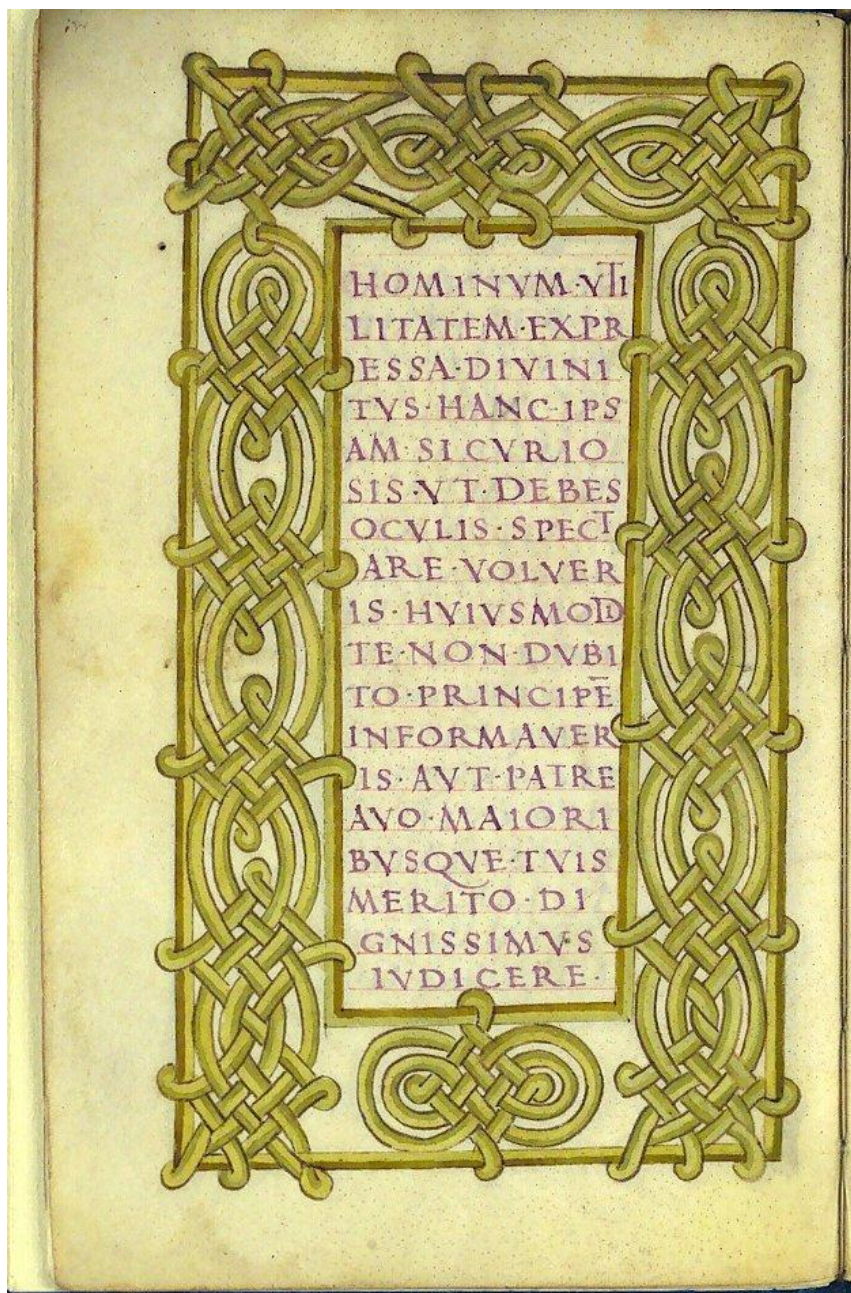 HOMINVM·VTI
LITATEM·EXPR
ESSA·DIVINI
TVS·HANC·IPS
AM SI CVRIO
SIS·VT·DEBES
OCVLIS·SPECT
ARE·VOLVER
IS·HVIVSMODI
TE·NON·DVBI
TO·PRINCIPĒ
INFORMAVER
IS·AVT·PATRE
AVO·MAIORI
BVSQVE·TVIS
MERITO·DI
GNISSIMVS
IVDICERE·